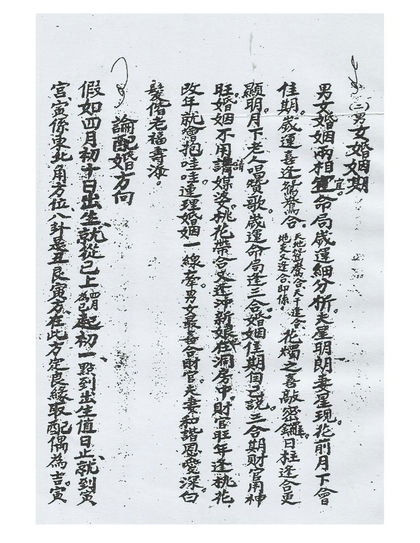 (二)男女婚姻期
男女婚姻兩相宜。命局歲運細分析。夫星明朗妻星現。花前月下會
佳期。歲運喜逢鴛鴦合。天地鴛鴦合天干逢合地支又逢合即係 花燭之喜敲密鑼。日柱逢合更
顯明。月下老人唱贊歌。歲運命局逢三合。婚姻佳期自己說。三合期財官用神
旺。婚姻不用請媒婆。桃花帶合又逢沖。新娘洞房中。財官旺年逢桃花。
改年就會抱哇哇。連理婚姻一線牽。男女最喜合財官。夫妻和諧恩愛深。白
髮偕老福壽添。
論配婚方向
假如四月初十日出生。就從巳上起初一。照到出生值日止。就到寅
宮。寅係東北角方位。八卦是丑艮寅方。在此方定良緣取配偶為吉。寅